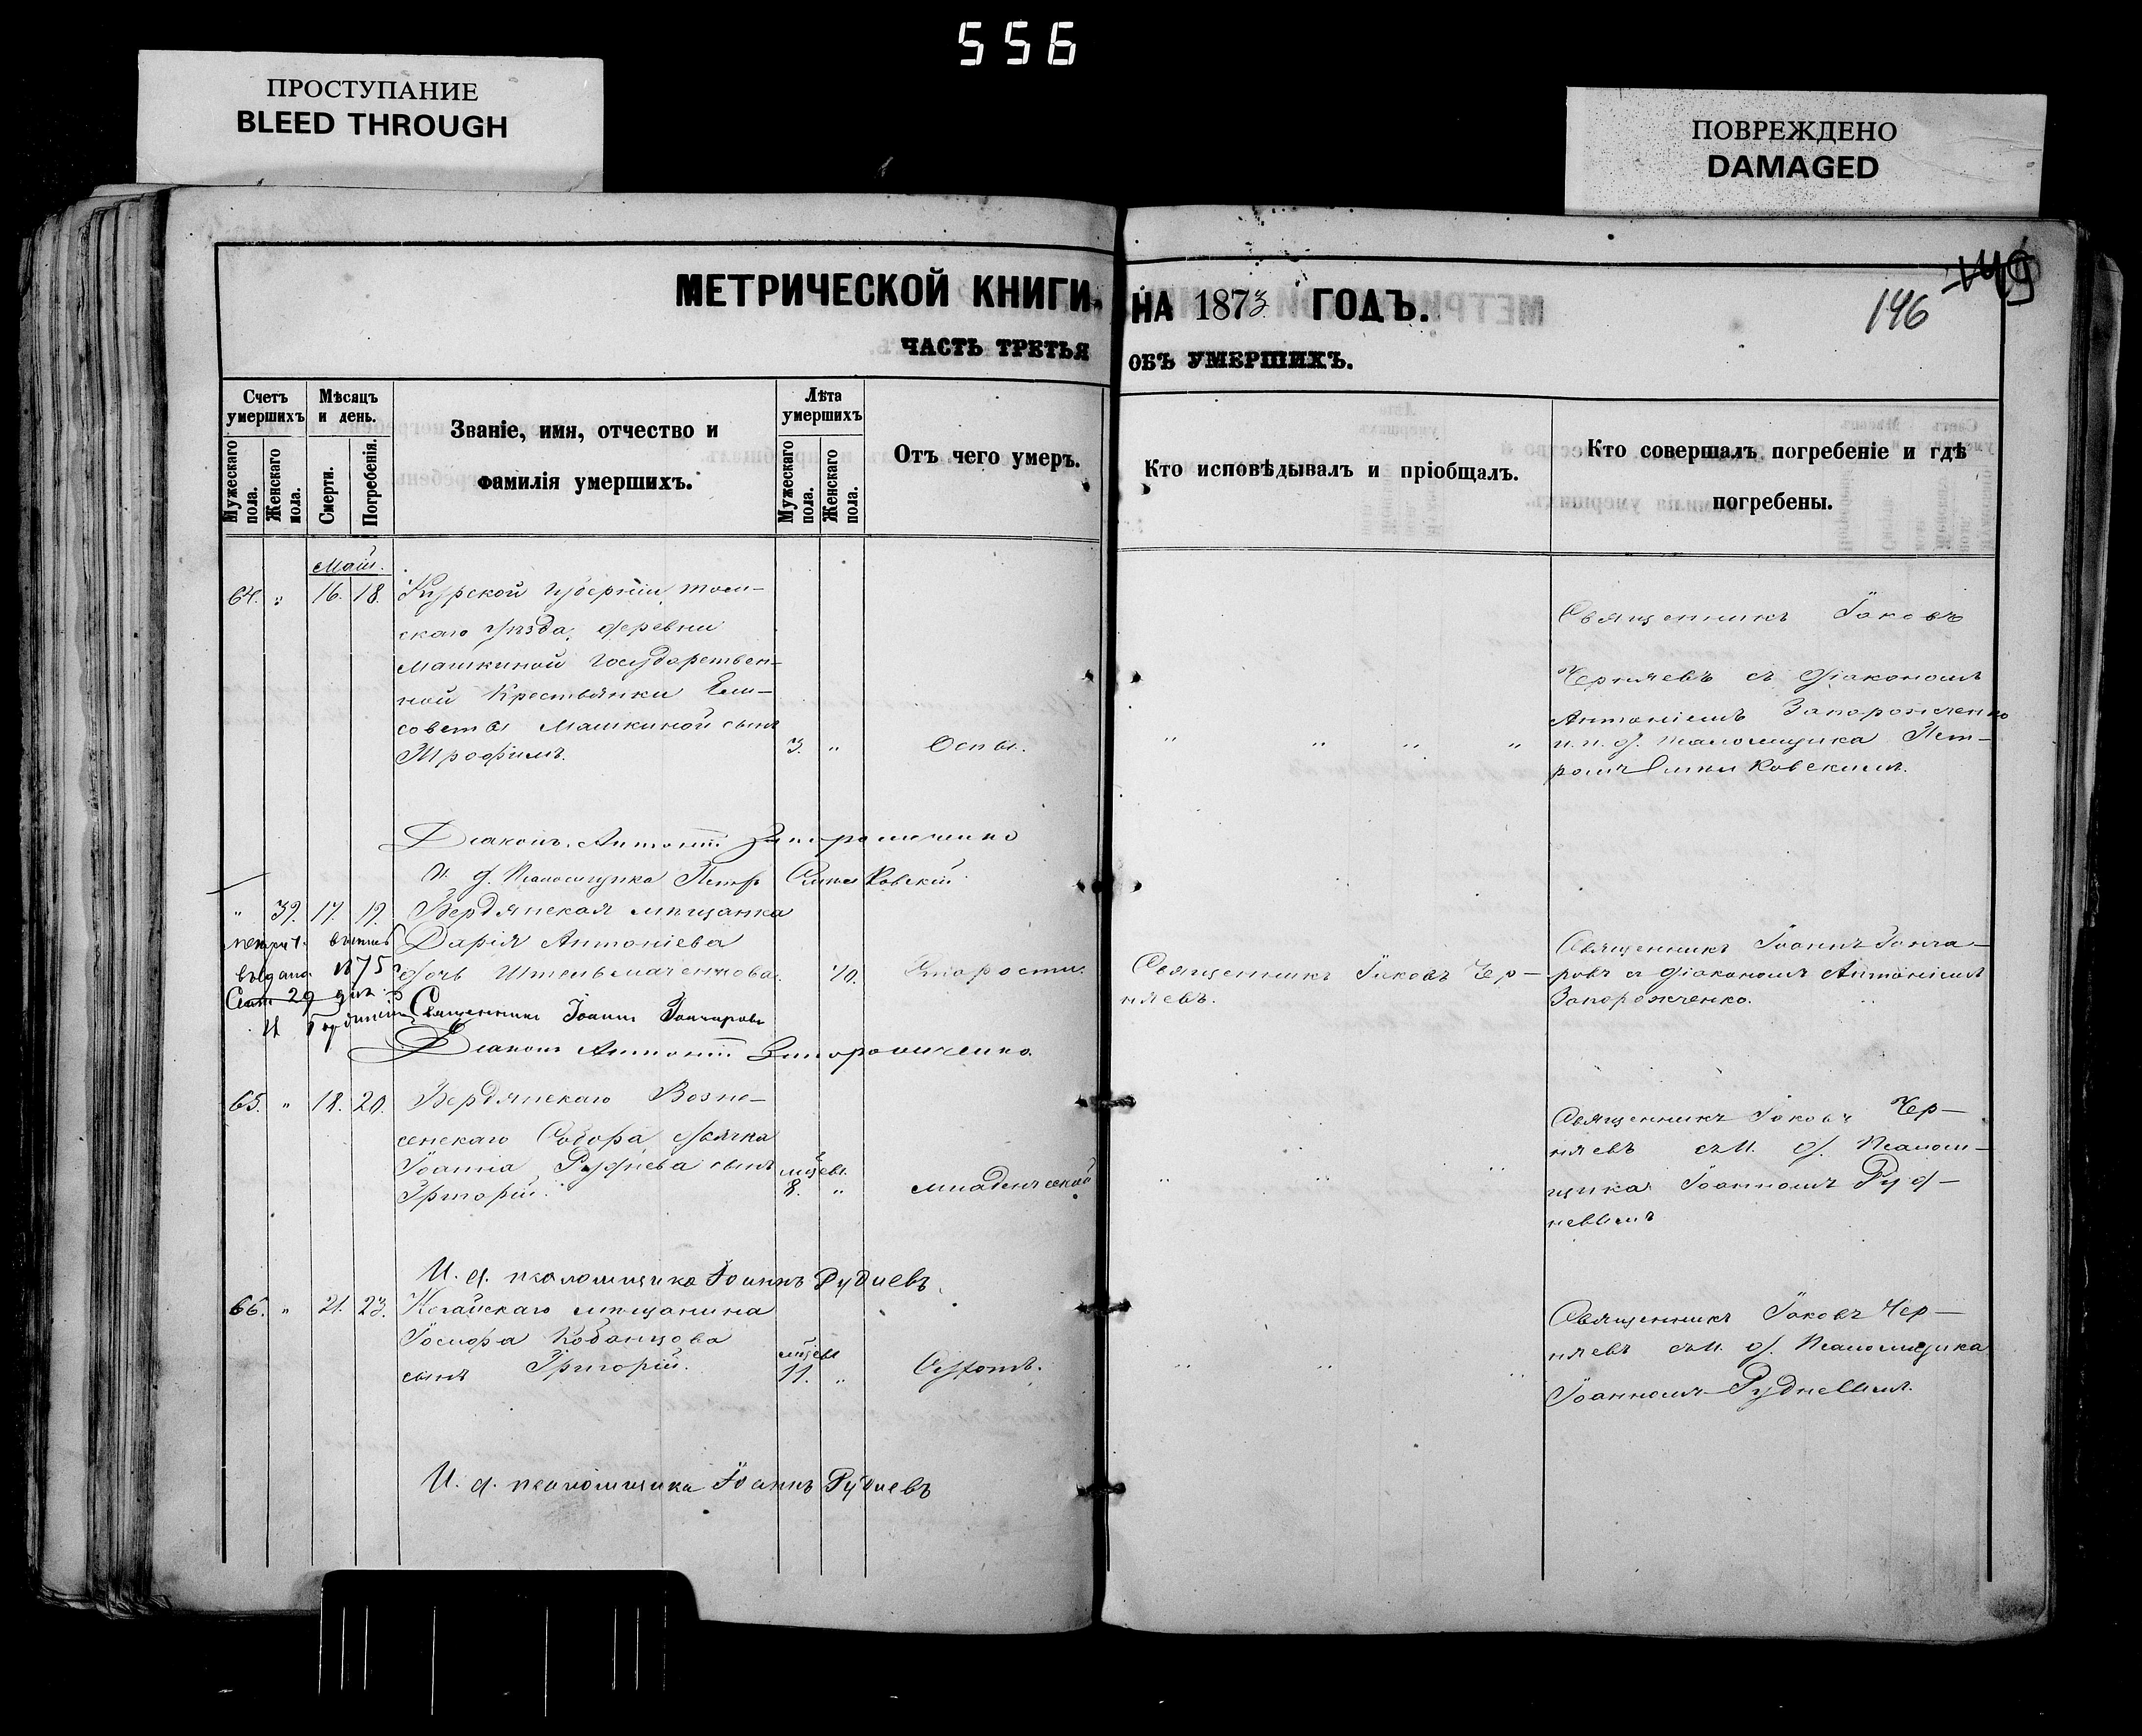 556
ПРОСТУПАНИЕ
BLEED THROUGH
ПОВРЕЖДЕНО
DAMAGED
146
МЕТРИЧЕСКОЙ КНИГИ, НА 1873 ГОДЪ.
ЧАСТЬ ТРЕТЬЯ ОБЪ УМЕРШИХЪ.
Счетъ умершихъ
Мужескаго пола.
Женскаго пола.
Мѣсяцъ и день.
Смерти.
Погребенія.
Званіе, имя, отчество и
фамилія умершихъ.
Лѣта умершихъ
Мужескаго пола.
Женскаго пола.
Отъ чего умеръ.
Кто исповѣдывалъ и пріобщалъ.
Кто совершалъ погребеніе и гдѣ
погребены.
Май.
64. " 16. 18. Курской губерніи, Тим-
скаго уѣзда, деревни
Машкиной Государствен-
ной Крестьянки Ели-
саветы Машкиной сынъ
Трофимъ. 3. " Оспы.
" " " "
Священникъ Іаковъ
Черняевъ съ Діакономъ
Антоніемъ Запорожченко
и. д. Псаломщика Пет-
ромъ
Діаконъ Антоній Запорожченко
И. д. Псаломщика Петръ
" 39. 17. 19. Бердянская мѣщанка
Дарія Антоніева
дочь 70. Старости.
Священникъ Іаковъ Чер-
няевъ.
Священникъ Іоаннъ Гонча-
ровъ съ Діакономъ Антоніемъ
Запорожченко.
выдано 1875
29
Священникъ Іоаннъ Гончаровъ
Діаконъ Антоній Запорожченко.
65. " 18. 20. Бердянскаго Возне-
сенскаго Собора дьячка
Іоанна Руднева сынъ
Григорій. мѣсяц. 8. " младенческой
" "
Священникъ Іаковъ Чер-
няевъ съ И. д. Псалом-
щика Іоанномъ Руд-
невымъ
И. д. псаломщика Іоаннъ Рудневъ.
66. " 21. 23. Ногайскаго мѣщанина
Іосифа
сынъ Григорій. мѣсяц. 11. "
" "
Священникъ Іаковъ Чер-
няевъ съ И. д. Псаломщика
Іоанномъ Рудневымъ.
И. д. псаломщика Іоаннъ Рудневъ